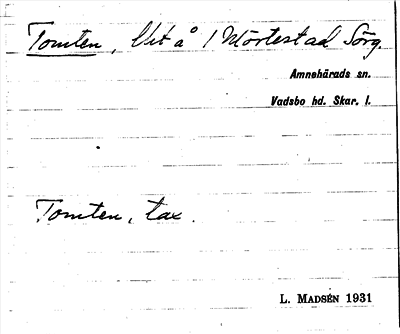 Tomten, Ut å 1 Mörtestad Sörg.
Amnehärads sn.
Vadsbo hd. Skar. l.
Tomten, tax.
L. MADSÉN 1931